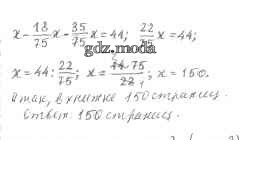 x - 18/75 x - 35/75 x = 44; 22/75 x = 44;
gdz.moda
x = 44 : 22/75; x = 44·75/22; x = 150.
Итак, в книжке 150 страниц.
Ответ: 150 страниц.